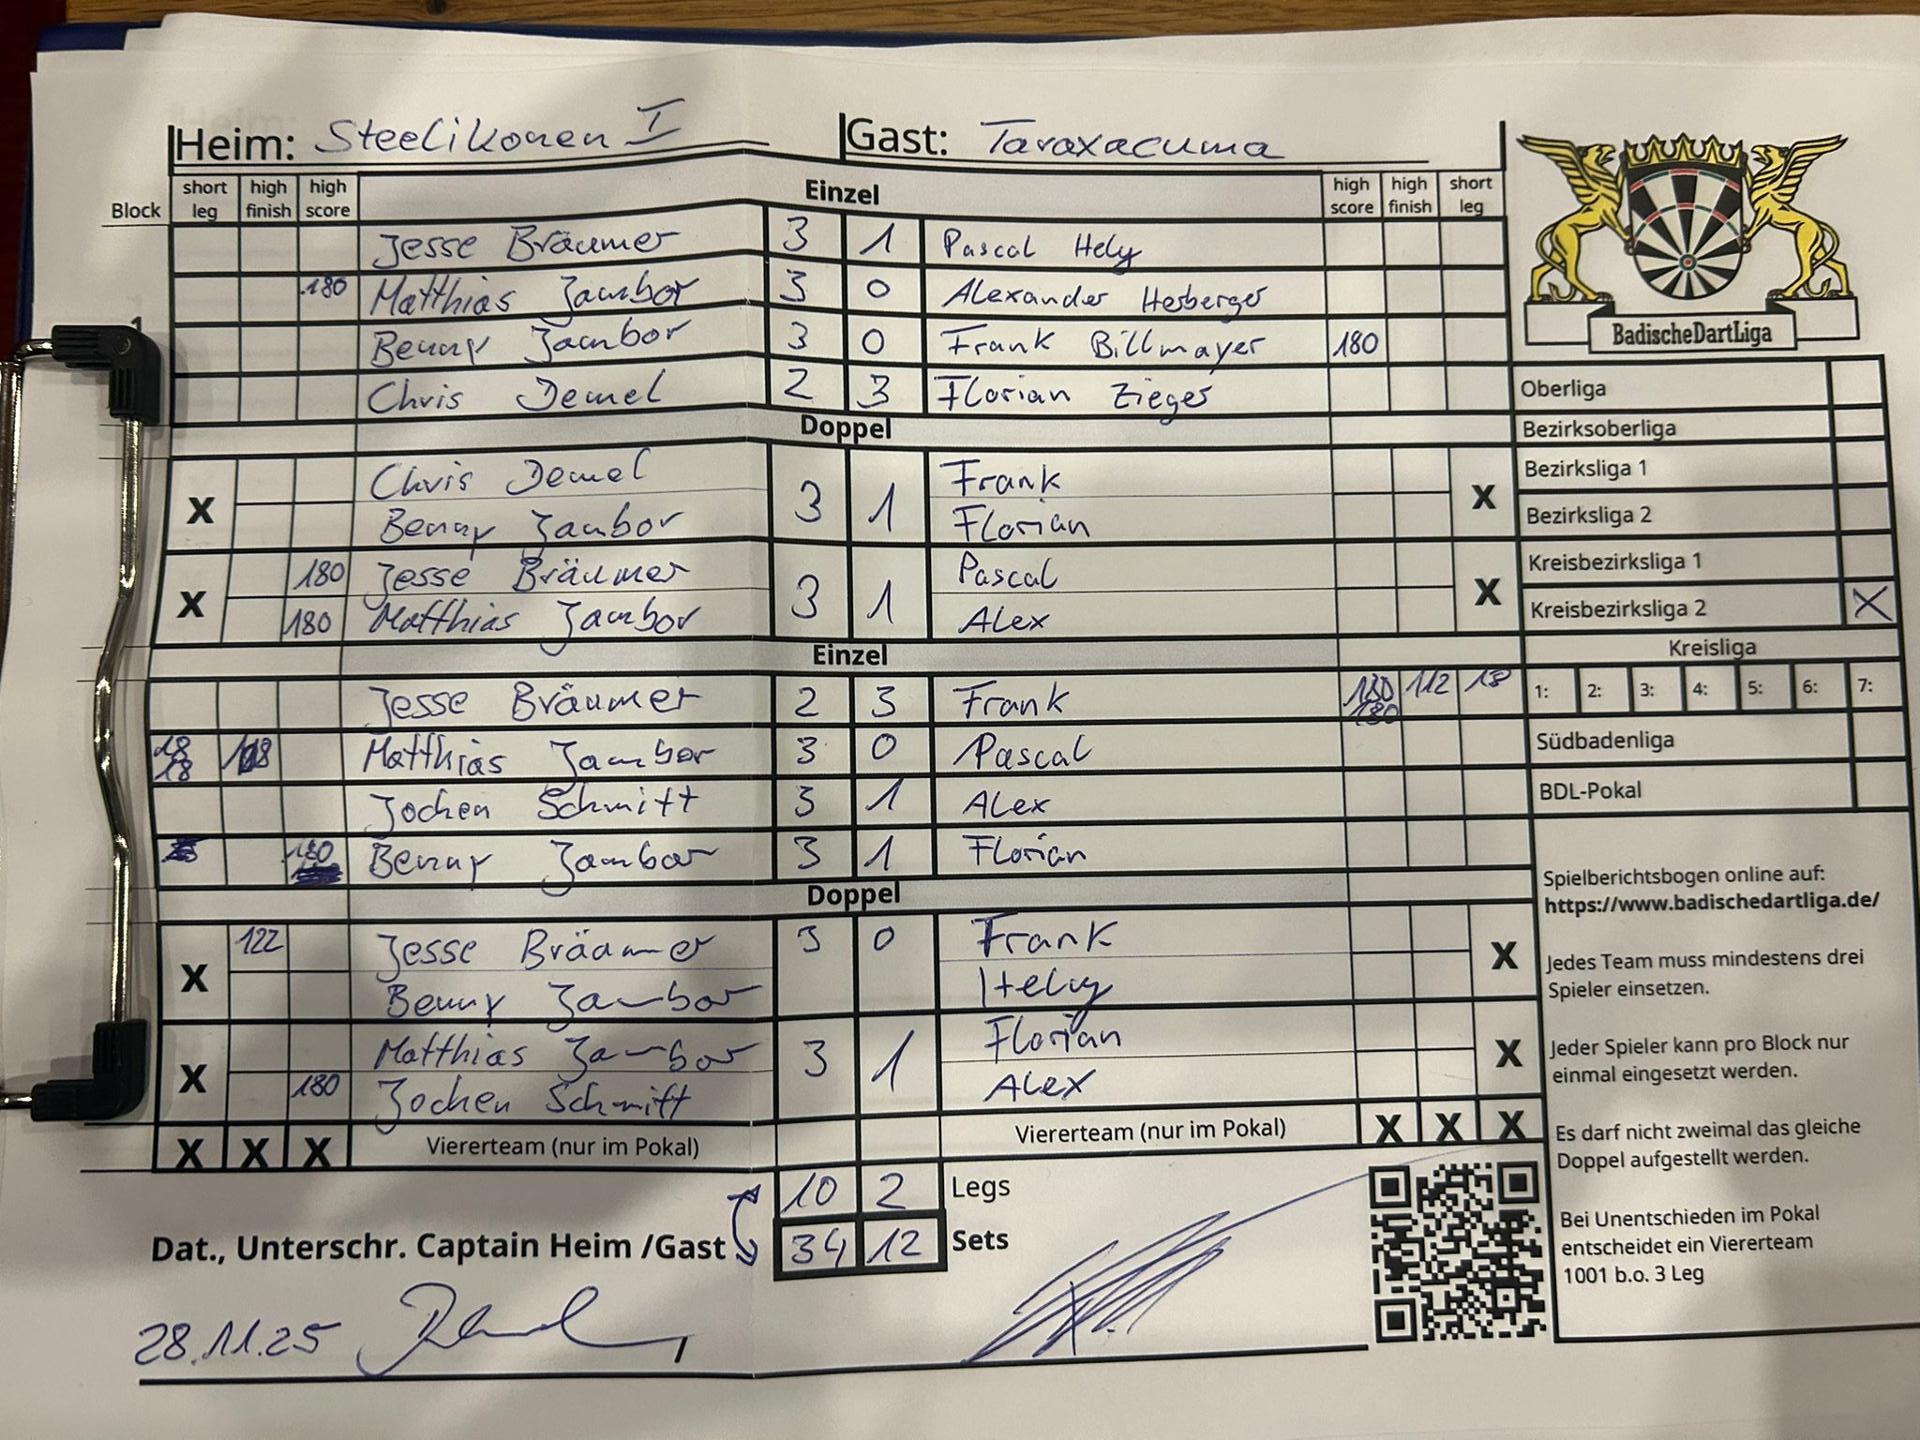 Heim: Steelikonen I Gast: Taraxacuma
Block short leg high finish high score Einzel high score high finish short leg
Jesse Bräumer 3 1 Pascal Hely
180 Matthias Jambor 3 0 Alexander Herberger
1
Benny Jambor 3 0 Frank Billmayer 180
Chris Demel 2 3 Florian Zieger
Doppel
Chris Demel Frank
X 3 1 X
Benny Jambor Florian
180 Jesse Bräumer Pascal
X 3 1 X
180 Matthias Jambor Alex
Einzel
Jesse Bräumer 2 3 Frank 180 112 18
180
18 118 Matthias Jambor 3 0 Pascal
18
Jochen Schmitt 3 1 Alex
180 Benny Jambor 3 1 Florian
Doppel
122 Jesse Bräumer 3 0 Frank
X X
Benny Jambor Hely
Matthias Jambor Florian
X 3 1 X
180 Jochen Schmitt Alex
X X X Vierterteam (nur im Pokal) Vierterteam (nur im Pokal) X X X
10 2 Legs
Dat., Unterschr. Captain Heim /Gast 34 12 Sets
28.11.25
BadischeDartLiga
Oberliga
Bezirksoberliga
Bezirksliga 1
Bezirksliga 2
Kreisbezirksliga 1
Kreisbezirksliga 2 X
Kreisliga
1: 2: 3: 4: 5: 6: 7:
Südbadenliga
BDL-Pokal
Spielberichtsbogen online auf:
https://www.badischedartliga.de/
Jedes Team muss mindestens drei
Spieler einsetzen.
Jeder Spieler kann pro Block nur
einmal eingesetzt werden.
Es darf nicht zweimal das gleiche
Doppel aufgestellt werden.
Bei Unentschieden im Pokal
entscheidet ein Viererteam
1001 b.o. 3 Leg